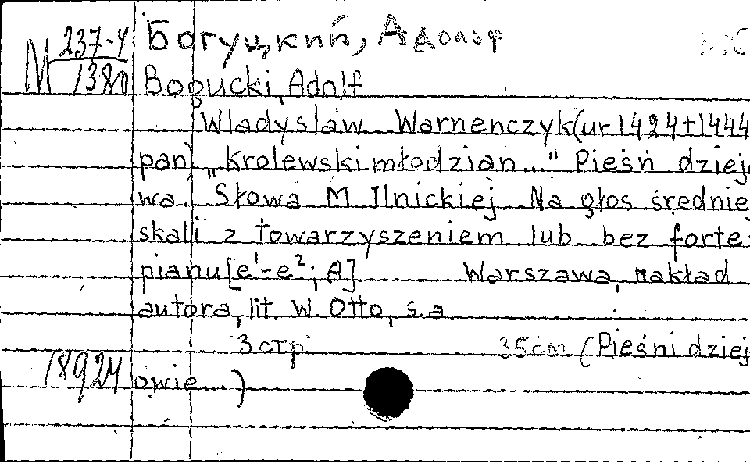 М 237-4 Богуцкий, Адольф
1380 Bogucki, Adolf
Wladyslaw Warnenczyk (ur 1424 + 1444
pan) „Krolewski młodzian..." Pieśń dziej.
wa. Słowa M Ilnickiej Na głos średnie
skali z towarzyszeniem lub bez forte-
pianu [e¹-e²; A] Warszawa, nakład
autora, lit. W. Otto, s.a
3 стр 35cm (Pieśni dziej
18924 owie...)